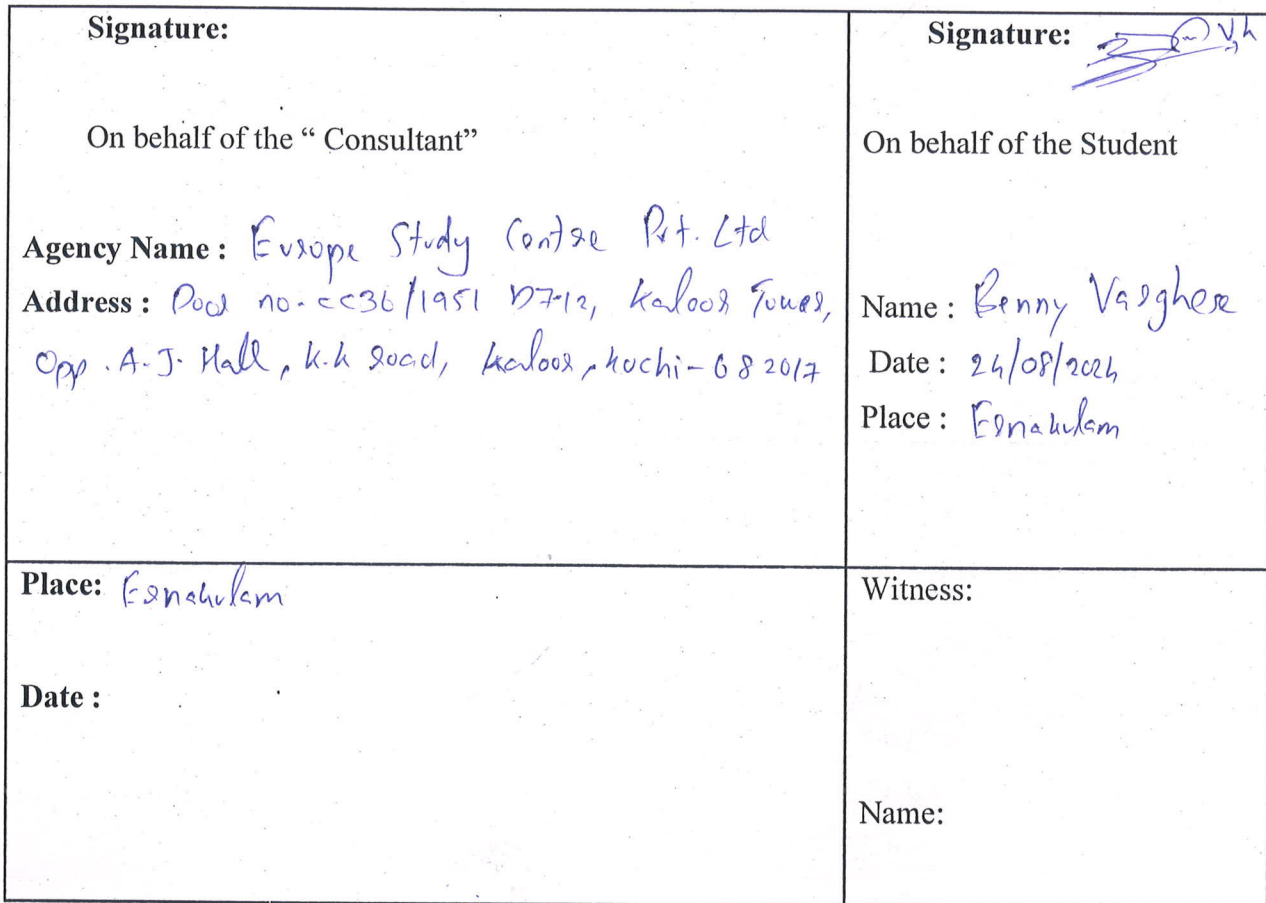 Signature:
On behalf of the “ Consultant”
Agency Name : Europe Study Centre Pvt. Ltd
Address : Door no. cc36/1951 D7-12, Kaloor Tower,
Opp. A.J. Hall, K.K road, Kaloor, Kochi - 682017
Signature:
On behalf of the Student
Name : Benny Varghese
Date : 24/08/2024
Place : Ernakulam
Place: Ernakulam
Date :
Witness:
Name: